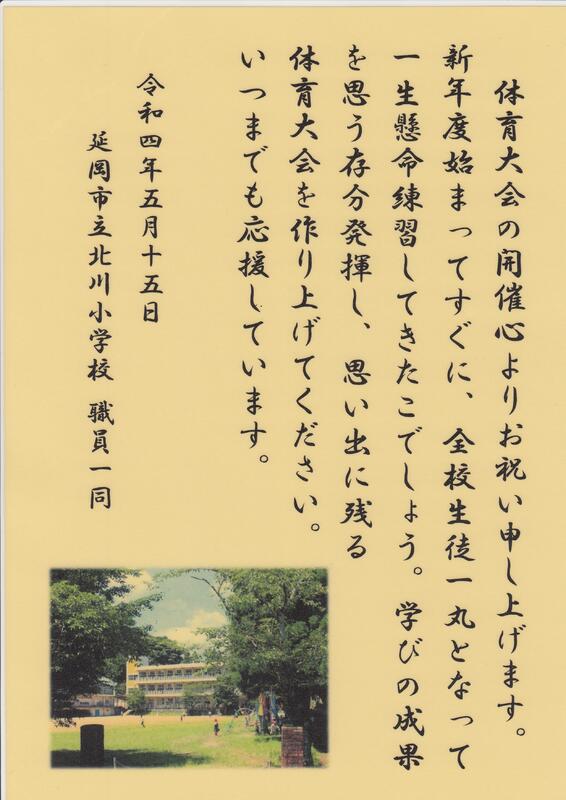 体育大会の開催心よりお祝い申し上げます。
新年度始まってすぐに、全校生徒一丸となって
一生懸命練習してきたこでしょう。学びの成果
を思う存分発揮し、思い出に残る
体育大会を作り上げてください。
いつまでも応援しています。
令和四年五月十五日
延岡市立北川小学校 職員一同